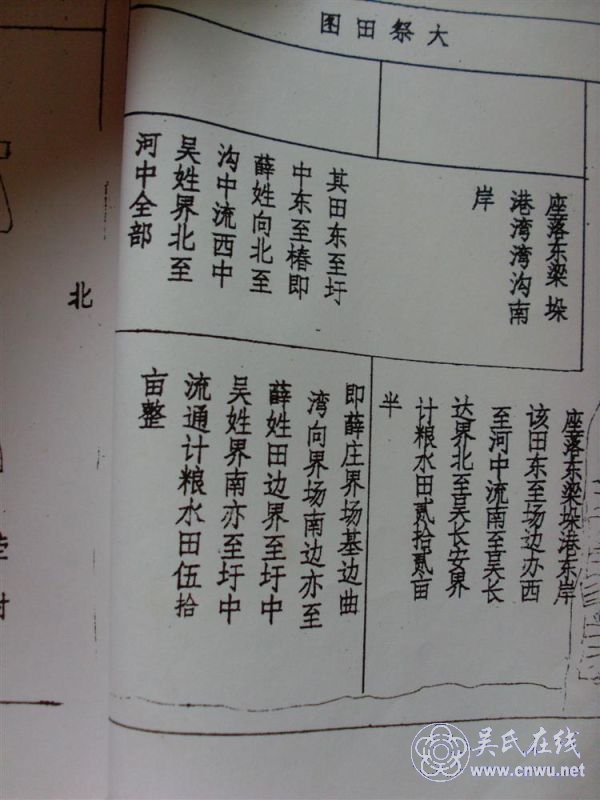 大祭田图
座落东梁垛
港湾湾沟南
岸
其田东至圩
中东至椿即
薛姓向北至
沟中流西中
吴姓界北至
河中全部
座落东梁垛港东岸
该田东至场边办西
至河中流南至吴长
达界北至吴长安界
计粮水田贰拾贰亩
半
即薛庄界场基边曲
湾向界场南边亦至
薛姓田边界至圩中
吴姓界南亦至圩中
流通计粮水田伍拾
亩整
北
吴氏在线
www.cnwu.net